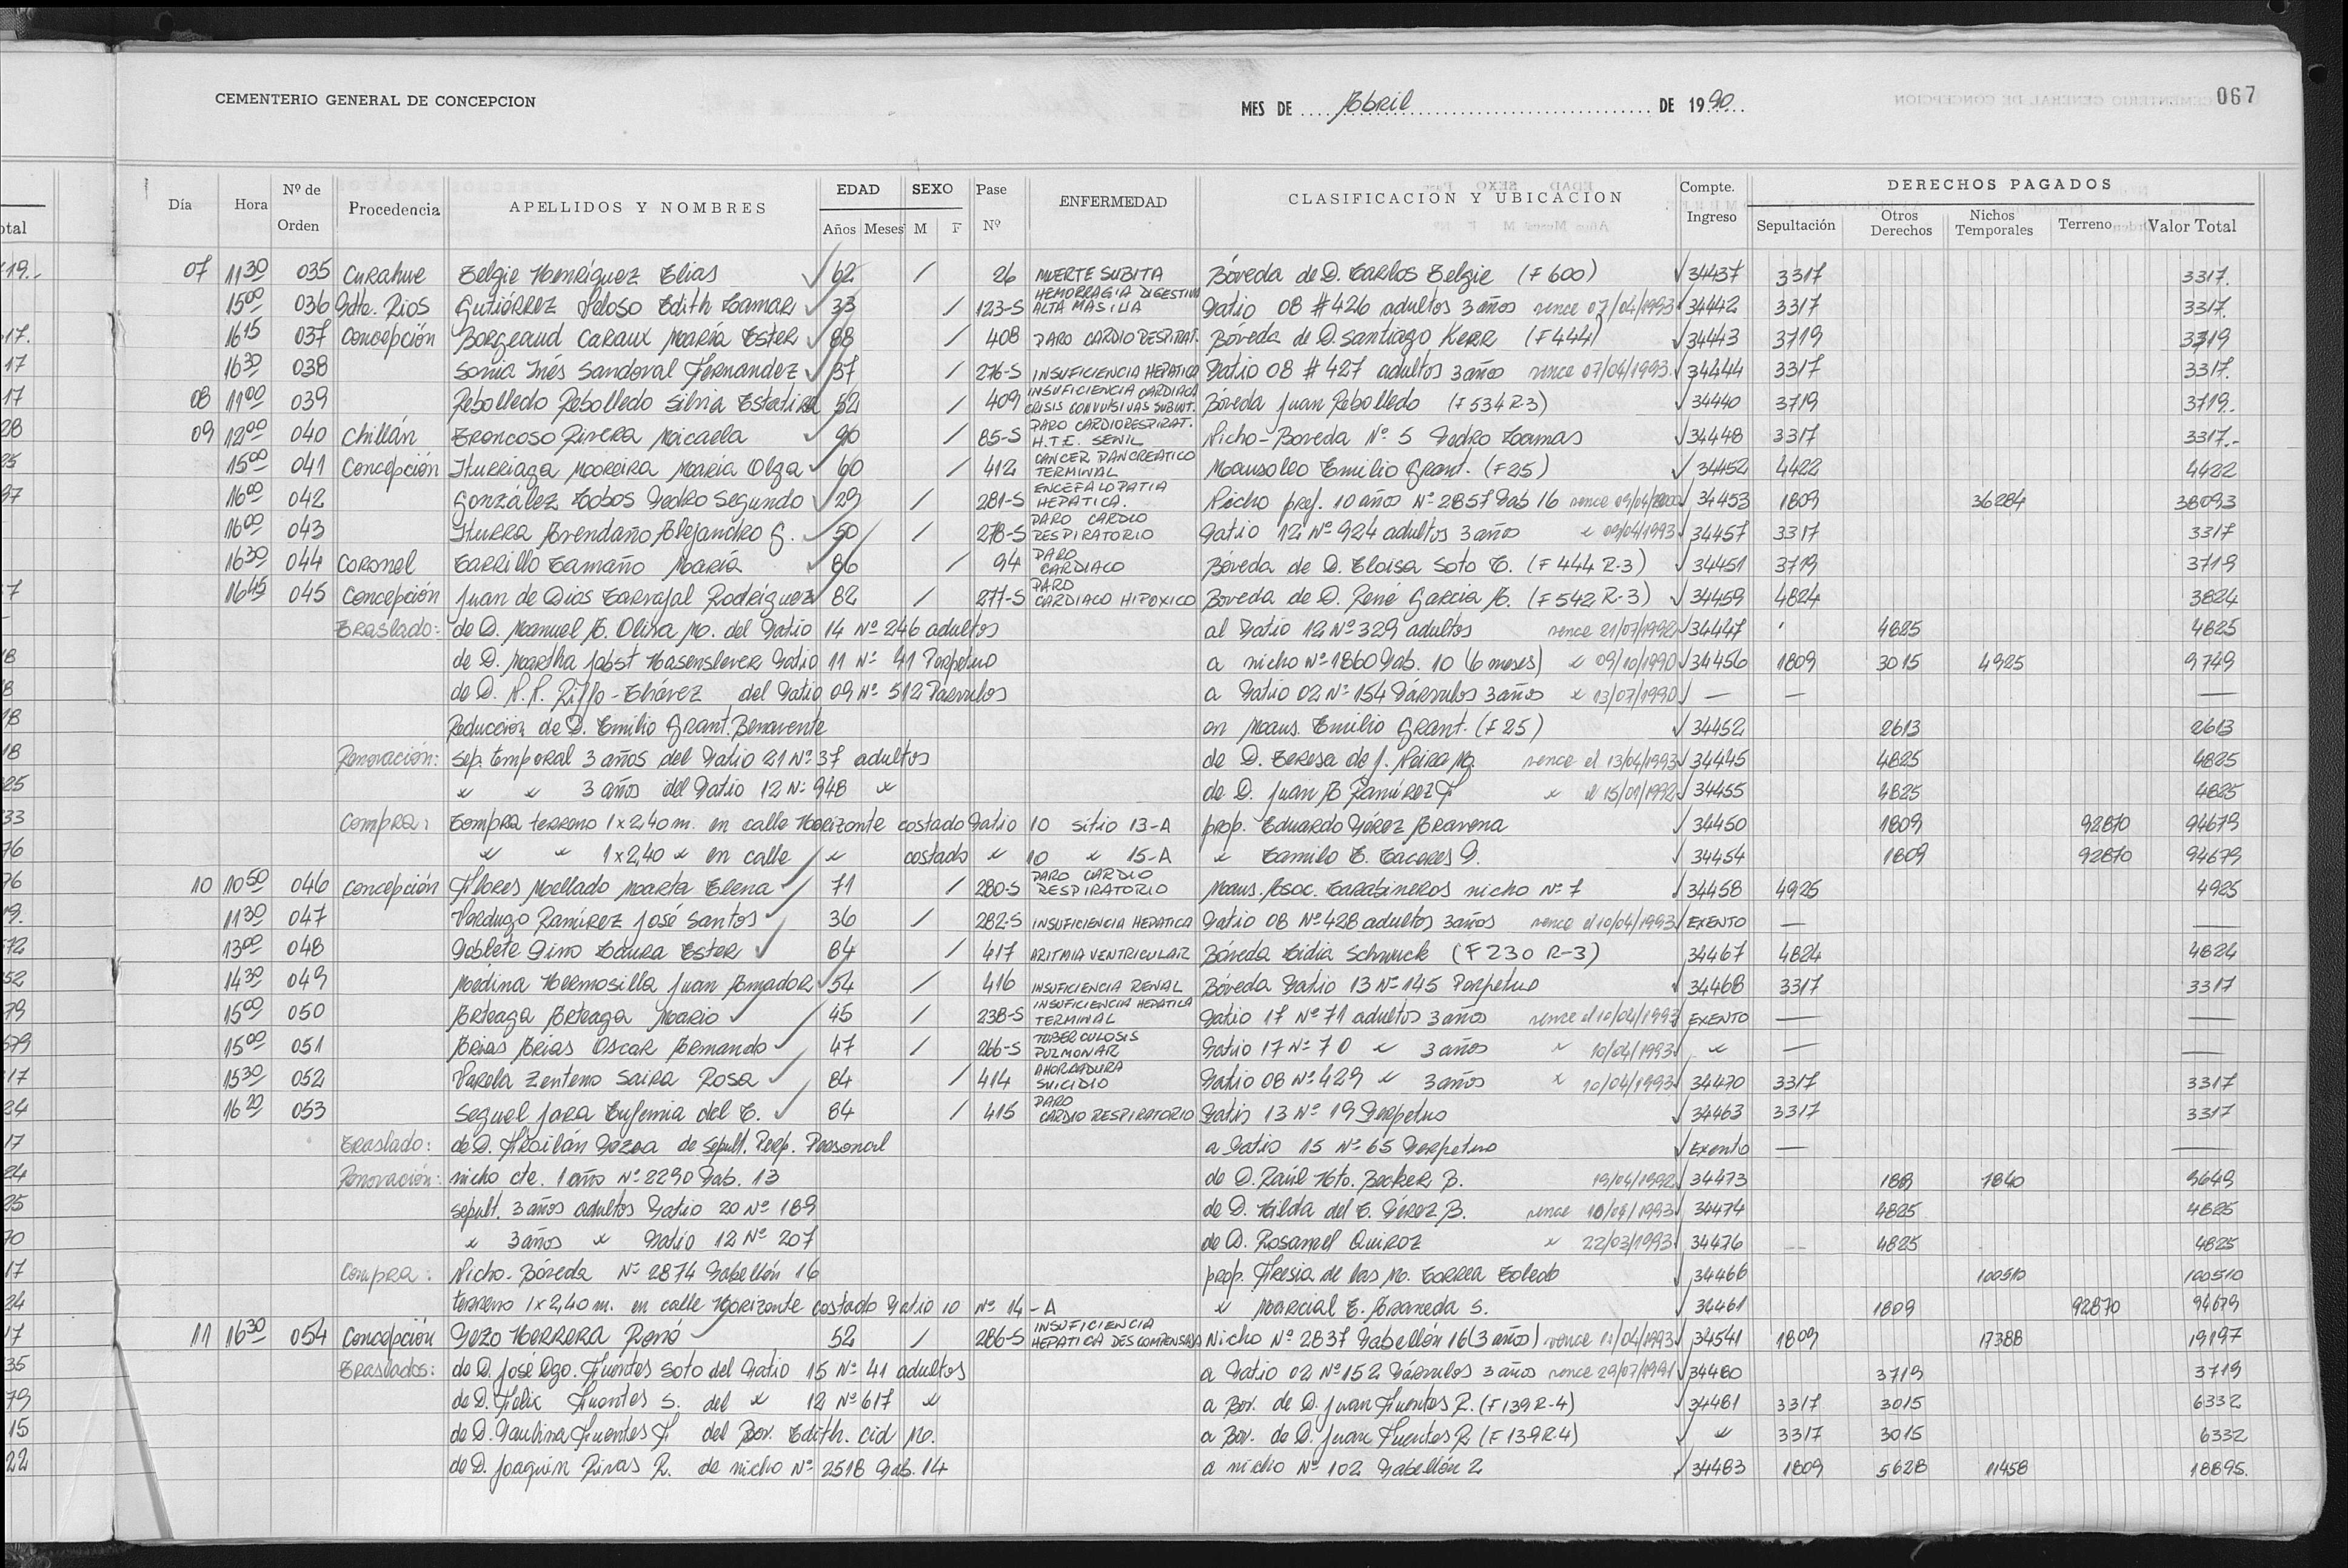 CEMENTERIO GENERAL DE CONCEPCION
MES DE Abril DE 1990
067
Día Hora Nº de Orden Procedencia APELLIDOS Y NOMBRES EDAD Años Meses SEXO M F Pase Nº ENFERMEDAD CLASIFICACION Y UBICACION Compte. Ingreso DERECHOS PAGADOS Sepultación Otros Derechos Nichos Temporales Terreno Valor Total
07 11 30 035 Curahue Belgie Henríquez Elias ✓ 62 / 26 MUERTE SUBITA Bóveda de D. Carlos Belgie (F 600) ✓ 34437 3317 3317.
15 00 036 Pdte. Rios Gutiérrez Veloso Edith Tamar ✓ 33 / 123-S HEMORRAGIA DIGESTIVA ALTA MASIVA Patio 08 # 426 adultos 3 años vence 07/04/1993 ✓ 34442 3317 3317.
16 15 037 Concepción Borgeaud Caraux María Ester ✓ 88 / 408 PARO CARDIO RESPIRAT. Bóveda de D. Santiago Kerr (F 444) ✓ 34443 3719 3719
16 30 038 Sonia Inés Sandoval Fernandez ✓ 37 / 276-S INSUFICIENCIA HEPATICA Patio 08 # 427 adultos 3 años vence 07/04/1993. ✓ 34444 3317 3317.
08 11 00 039 Rebolledo Rebolledo Silvia Estatira 52 / 409 INSUFICIENCIA CARDIACA CRISIS CONVULSIVAS SUBINT. Bóveda Juan Rebolledo (F 534 R-3) ✓ 34440 3719 3719.
09 12 00 040 Chillán Troncoso Rivera Micaela ✓ 90 / 85-S PARO CARDIORESPIRAT. H.T.E. SENIL Nicho-Boveda Nº 5 Pedro Lamas ✓ 34448 3317 3317.-
15 00 041 Concepción Iturriaga Moreira María Olga ✓ 60 / 412 CANCER PANCREATICO TERMINAL Mausoleo Emilio Grant. (F 25) ✓ 34452 4422 4422
16 00 042 González Cobos Pedro Segundo ✓ 29 / 281-S ENCEFALOPATIA HEPATICA. Nicho pref. 10 años Nº 2857 Pab 16 vence 09/04/2000 ✓ 34453 1809 36284 38093
16 00 043 Iturra Avendaño Alejandro G. ✓ 50 / 278-S PARO CARDIO RESPIRATORIO Patio 12 Nº 924 adultos 3 años " 09/04/1993 ✓ 34457 3317 3317
16 30 044 Coronel Carrillo Camaño María ✓ 86 / 94 PARO CARDIACO Bóveda de D. Eloisa Soto C. (F 444 R-3) ✓ 34451 3719 3719
16 45 045 Concepción Juan de Dios Carvajal Rodríguez ✓ 82 / 277-S PARO CARDIACO HIPOXICO Boveda de D. René Garcia A. (F 542 R-3) ✓ 34459 4824 3824
Traslado: de D. Manuel A. Oliva M. del Patio 14 Nº 246 adultos al Patio 12 Nº 329 adultos vence 21/07/1992 ✓ 34447 4825 4825
de D. Martha Jabst Hasenslever Patio 11 Nº 41 Perpetuo a nicho Nº 1860 Pab. 10 (6 meses) " 09/10/1990 ✓ 34456 1809 3015 4925 9749
de D. N.N. Riffo-Chávez del Patio 09 Nº 512 Párvulos a Patio 02 Nº 154 Párvulos 3 años " 13/07/1990 ✓ — — —
Reducción de D. Emilio Grant. Benavente en Maus. Emilio Grant. (F 25) ✓ 34452 2613 2613
Renovación: sep. temporal 3 años del Patio 21 Nº 37 adultos de D. Teresa de J. Neira M. vence el 13/04/1993 ✓ 34445 4825 4825
" " 3 años del Patio 12 Nº 948 " de D. Juan A Ramírez F " el 15/01/1992 ✓ 34455 4825 4825
Compra: Compra terreno 1x2,40 m. en calle Horizonte costado Patio 10 sitio 13-A prop. Eduardo Pérez Aravena ✓ 34450 1809 92870 94679
" " 1x2,40 " en calle " costado " 10 " 15-A " Camilo E. Caceres P. ✓ 34454 1809 92870 94679
10 10 50 046 Concepción Flores Mellado Marta Elena ✓ 71 / 280-S PARO CARDIO RESPIRATORIO Maus. Asoc. Carabineros nicho Nº 7 ✓ 34458 4925 4925
11 30 047 Verdugo Ramírez José Santos ✓ 36 / 282-S INSUFICIENCIA HEPATICA Patio 08 Nº 428 adultos 3 años vence el 10/04/1993 ✓ EXENTO — —
13 00 048 Poblete Pino Laura Ester ✓ 84 / 417 ARITMIA VENTRICULAR Bóveda Lidia Schwuck (F 230 R-3) 34467 4824 4824
14 30 049 Medina Hermosilla Juan Amador ✓ 54 / 416 INSUFICIENCIA RENAL Bóveda Patio 13 Nº 145 Perpetuo ✓ 34468 3317 3317
15 00 050 Arteaga Arteaga Mario ✓ 45 / 238-S INSUFICIENCIA HEPATICA TERMINAL Patio 17 Nº 71 adultos 3 años vence el 10/04/1993 EXENTO — —
15 00 051 Arias Arias Oscar Armando ✓ 47 / 266-S TUBERCULOSIS PULMONAR Patio 17 Nº 70 " 3 años " 10/04/1993 ✓ " — —
15 30 052 Varela Zenteno Saira Rosa ✓ 84 / 414 AHORCADURA SUICIDIO Patio 08 Nº 429 " 3 años " 10/04/1993 ✓ 34470 3317 3317
16 20 053 Seguel Jara Eufemia del C. ✓ 84 / 415 PARO CARDIO RESPIRATORIO Patio 13 Nº 19 Perpetuo ✓ 34463 3317 3317
Traslado: de D. Froilán de Sepult. Perp. Personal a Patio 15 Nº 65 Perpetuo ✓ Exento — —
Renovación: nicho cte. 1 año Nº 2290 Pab. 13 de D. Raúl Hto. Becker B. 19/04/1992 ✓ 34473 1809 7840 9649
sepult. 3 años adultos Patio 20 Nº 189 de D. Hilda del C. Pérez B. vence 10/04/1993 ✓ 34474 4825 4825
" 3 años " Patio 12 Nº 207 de D. Rosamel Quiroz " 22/03/1993 34476 4825 4825
Compra: Nicho-Bóveda Nº 2874 Pabellón 16 prop. Fresia de las M. Correa Toledo ✓ 34466 100510 100510
terreno 1x2,40 m. en calle Horizonte costado Patio 10 Nº 14-A " Marcial E. Araneda S. ✓ 34461 1809 92870 94679
11 16 30 054 Concepción Pezo Herrera René ✓ 52 / 286-S INSUFICIENCIA HEPATICA DESCOMPENSADA Nicho Nº 2837 Pabellón 16 (3 años) vence 11/04/1993 ✓ 34541 1809 17388 19197
Traslados: de D. José Dgo. Fuentes Soto del Patio 15 Nº 41 adultos a Patio 02 Nº 152 Párvulos 3 años vence 29/07/1991 ✓ 34480 3719 3719
de D. Felix Fuentes S. del " 12 Nº 617 " a Bov. de D. Juan Fuentes R. (F 139 R-4) ✓ 34481 3317 3015 6332
de D. Paulina Fuentes F del Bov. Edith. Cid M. a Bov. de D. Juan Fuentes R (F 139 R-4) ✓ " 3317 3015 6332
de D. Joaquin Rivas R. de nicho Nº 2518 Pab. 14 a nicho Nº 102 Pabellón 2 ✓ 34483 1809 5628 11458 18895.